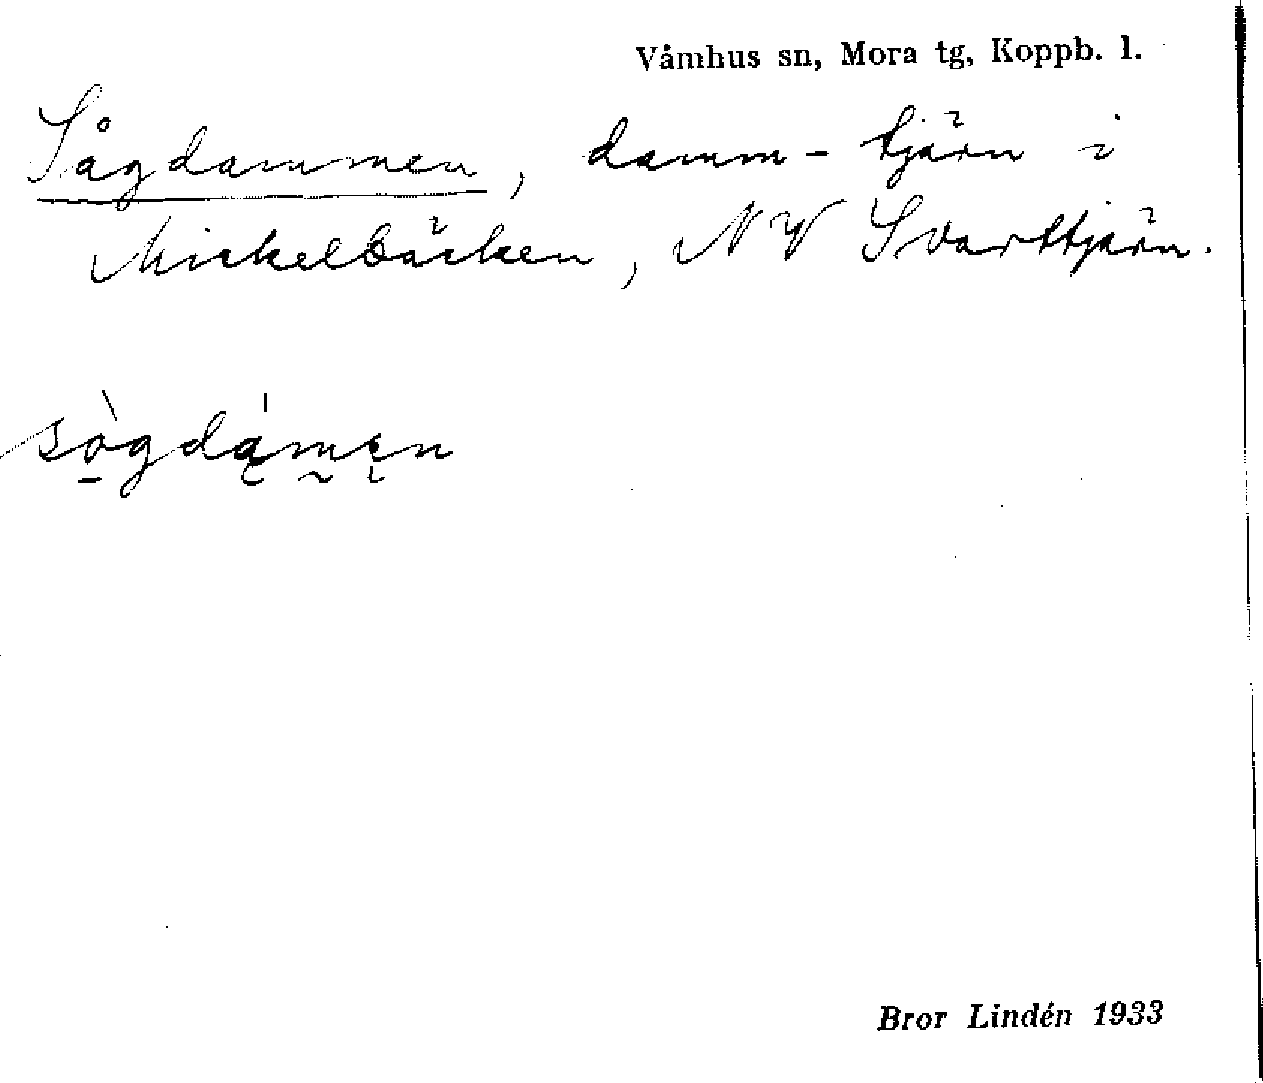 Våmhus sn, Mora tg, Koppb. l.
Sågdammen, damm-tjärn i
Mickelbäcken, NV Svarttjärn.
sò̠gdą́m̰ę̀n
Bror Lindén 1933